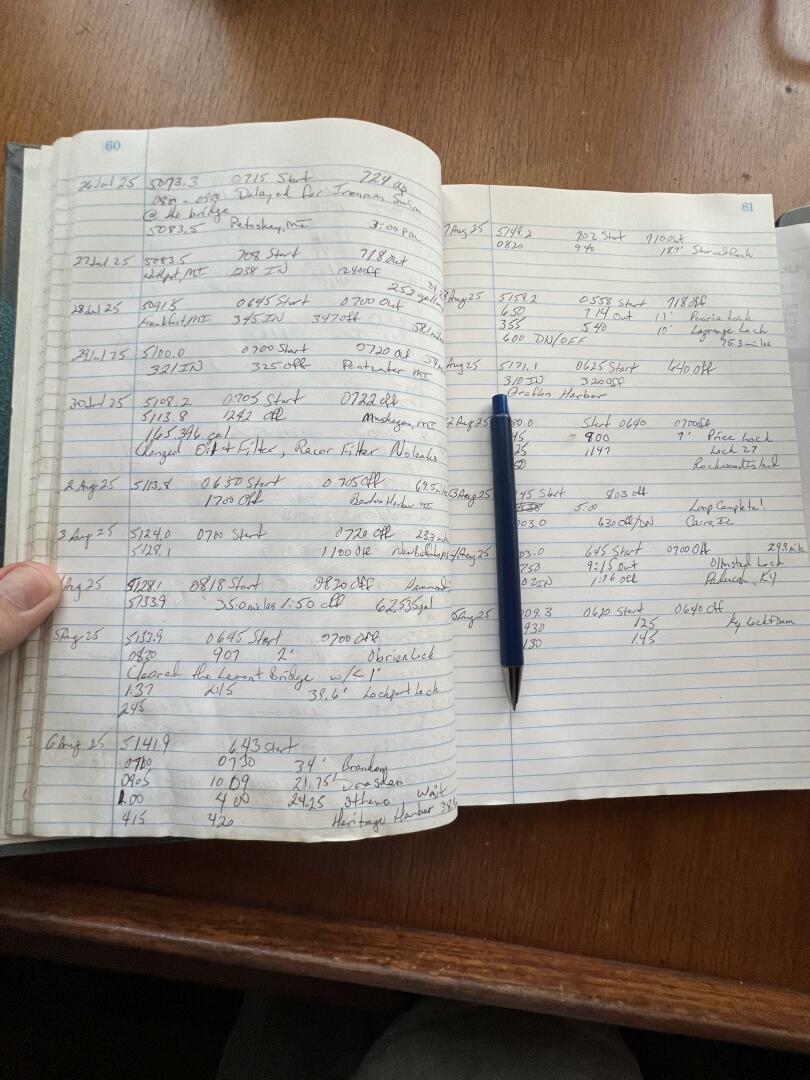 60
26 Jul 25 5073.3 0715 Start 724
0800 - 0900 Delayed for Ironman Swim
@ the bridge
5083.5 Petoskey, MI 3:00 pm
27 Jul 25 5083.5 708 Start 718 out
MI 1238 IN 1240 off
252
28 Jul 25 5091.5 0645 Start 0700 Out
Frankfort, MI 345 IN 347 off
29 Jul 25 5100.0 0700 Start 0720 Out
321 IN 325 off Pentwater MI
30 Jul 25 5108.2 0705 Start 0722 off
5113.8 1242 off Muskegon, MI
165.396 gal
Changed Oil & Filter, Racor Filter No leaks
2 Aug 25 5113.8 0630 Start 0705 off
1700 off Benton Harbor MI
3 Aug 25 5124.0 0700 Start 0720 off
5128.1 1100 off
Aug 25 5128.1 0818 Start 0820 off Hammond
5133.9 35.0 miles 1:50 off 62.535 gal
5 Aug 25 5133.9 0645 Start 0700 off
0830 907 2' Obrien Lock
Cleared the Lemont Bridge w/ < 1'
1:37 2:15 39.6' Lockport Lock
245
6 Aug 25 5141.9 643 start
0700 0730 34' Brandon
0905 10 09 21.75' Dresden
4 00 24.25 Ottawa Wait
415 420 Heritage Harbor
61
7 Aug 25 5149.2 702 Start 710 out
0820 940 18.7' Starved Rock
Aug 25 5159.2 0558 Start 718 off
650 714 Out 11' Peoria Lock
355 540 10' Lagrange Lock
600 DN/OFF 75.3 miles
Aug 25 5171.1 0625 Start 640 off
310 IN 320 off
Grafton Harbor
2 Aug 25 80.0 Start 0640 0700 off
45 900 7' Price Lock
25 1147 Lock 27
50 Rockwood Island
3 Aug 25 45 Start 803 off
5:00 Loop Complete!
03.0 630 Off/DN Cairo, IL
Aug 25 03.0 645 Start 0700 Off 29.8 mile
750 9:15 Out Olmsted Lock
02 IN 1:16 off Paducah, KY
5 Aug 25 09.3 0620 Start 0640 off
930 125 Ky Lock & Dam
130 1:45